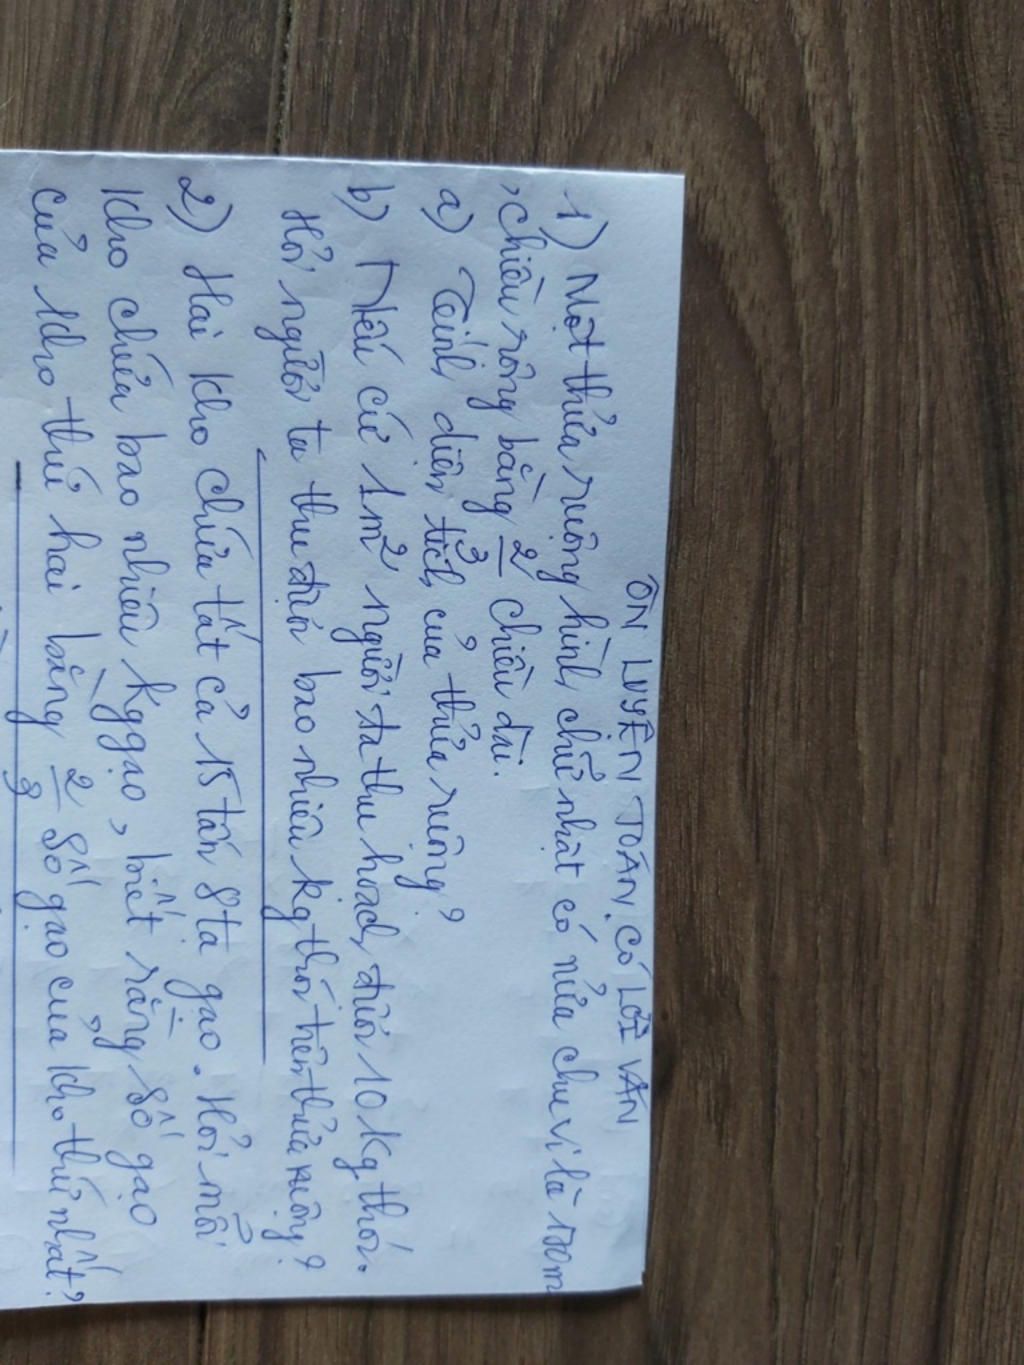 ÔN LUYỆN TOÁN CÓ LỜI VĂN
1) Một thửa ruộng hình chữ nhật có nửa chu vi là 150m
, chiều rộng bằng 2/3 chiều dài.
a) Tính diện tích của thửa ruộng?
b) Nếu cứ 1m² người ta thu hoạch được 10 kg thóc.
Hỏi người ta thu được bao nhiêu kg thóc trên thửa ruộng?
2) Hai kho chứa tất cả 15 tấn 8 tạ gạo. Hỏi mỗi
kho chứa bao nhiêu kg gạo, biết rằng số gạo
của kho thứ hai bằng 2/3 số gạo của kho thứ nhất?